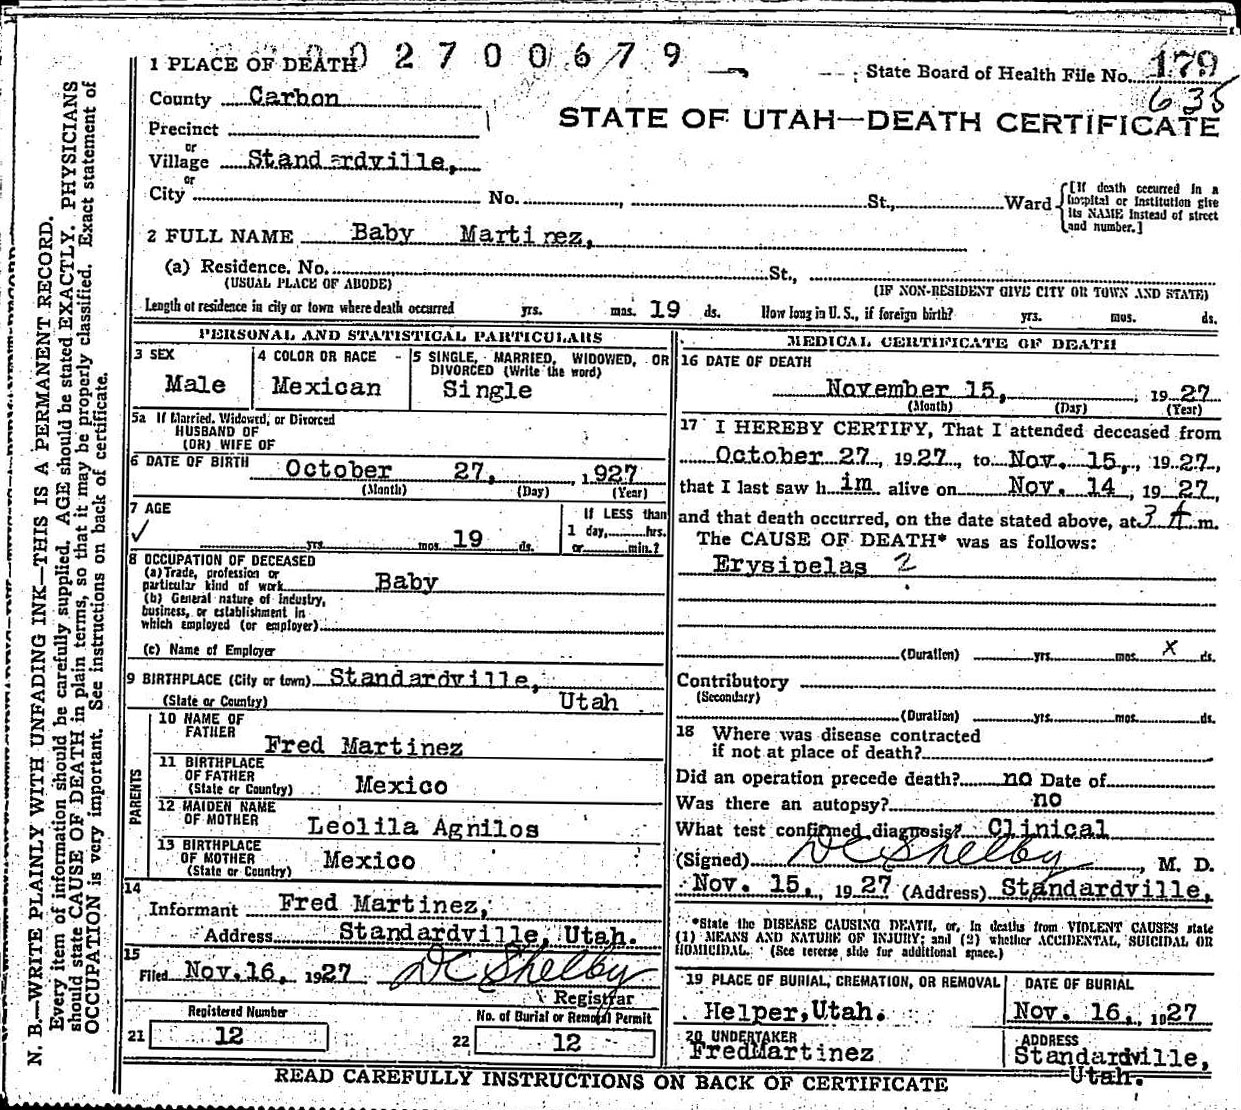 1 PLACE OF DEATH 0 0 2 7 0 0 6 7 9
State Board of Health File No. 179
635
County Carbon
STATE OF UTAH—DEATH CERTIFICATE
Precinct
or
Village Standardville,
or
City No. , St., Ward [If death occurred in a hospital or institution give its NAME instead of street and number.]
2 FULL NAME Baby Martinez,
(a) Residence. No. St.,
(USUAL PLACE OF ABODE) (IF NON-RESIDENT GIVE CITY OR TOWN AND STATE)
Length of residence in city or town where death occurred yrs. mos. 19 ds. How long in U. S., if foreign birth? yrs. mos. ds.
PERSONAL AND STATISTICAL PARTICULARS
3 SEX
Male
4 COLOR OR RACE
Mexican
5 SINGLE, MARRIED, WIDOWED, OR
DIVORCED (Write the word)
Single
5a If Married, Widowed, or Divorced
HUSBAND OF
(OR) WIFE OF
6 DATE OF BIRTH October 27, 1927
(Month) (Day) (Year)
7 AGE
yrs. mos. 19 ds.
If LESS than
1 day, hrs.
or min.?
8 OCCUPATION OF DECEASED
(a) Trade, profession or
particular kind of work Baby
(b) General nature of industry,
business, or establishment in
which employed (or employer)
(c) Name of Employer
9 BIRTHPLACE (City or town) Standardville,
(State or Country) Utah
PARENTS
10 NAME OF
FATHER
Fred Martinez
11 BIRTHPLACE
OF FATHER
(State or Country) Mexico
12 MAIDEN NAME
OF MOTHER Leolila Agnilos
13 BIRTHPLACE
OF MOTHER
(State or Country) Mexico
14
Informant Fred Martinez,
Address Standardville, Utah.
15
Filed Nov. 16, 1927 DC Shelby
Registrar
Registered Number
21 12
No. of Burial or Removal Permit
22 12
MEDICAL CERTIFICATE OF DEATH
16 DATE OF DEATH
November 15, 1927
(Month) (Day) (Year)
17 I HEREBY CERTIFY, That I attended deceased from
October 27, 1927, to Nov. 15, 1927,
that I last saw him alive on Nov. 14, 1927,
and that death occurred, on the date stated above, at 3 A m.
The CAUSE OF DEATH* was as follows:
Erysipelas 2
(Duration) yrs. mos. x ds.
Contributory
(Secondary)
(Duration) yrs. mos. ds.
18 Where was disease contracted
if not at place of death?
Did an operation precede death? no Date of
Was there an autopsy? no
What test confirmed diagnosis? Clinical
(Signed) DC Shelby, M. D.
Nov. 15, 1927 (Address) Standardville,
*State the DISEASE CAUSING DEATH, or, in deaths from VIOLENT CAUSES state
(1) MEANS AND NATURE OF INJURY; and (2) whether ACCIDENTAL, SUICIDAL OR
HOMICIDAL. (See reverse side for additional space.)
19 PLACE OF BURIAL, CREMATION, OR REMOVAL
Helper, Utah.
DATE OF BURIAL
Nov. 16, 1927
20 UNDERTAKER
FredMartinez
ADDRESS
Standardville,
Utah.
READ CAREFULLY INSTRUCTIONS ON BACK OF CERTIFICATE
N. B.—WRITE PLAINLY WITH UNFADING INK—THIS IS A PERMANENT RECORD.
Every item of information should be carefully supplied. AGE should be stated EXACTLY. PHYSICIANS
should state CAUSE OF DEATH in plain terms, so that it may be properly classified. Exact statement of
OCCUPATION is very important. See instructions on back of certificate.